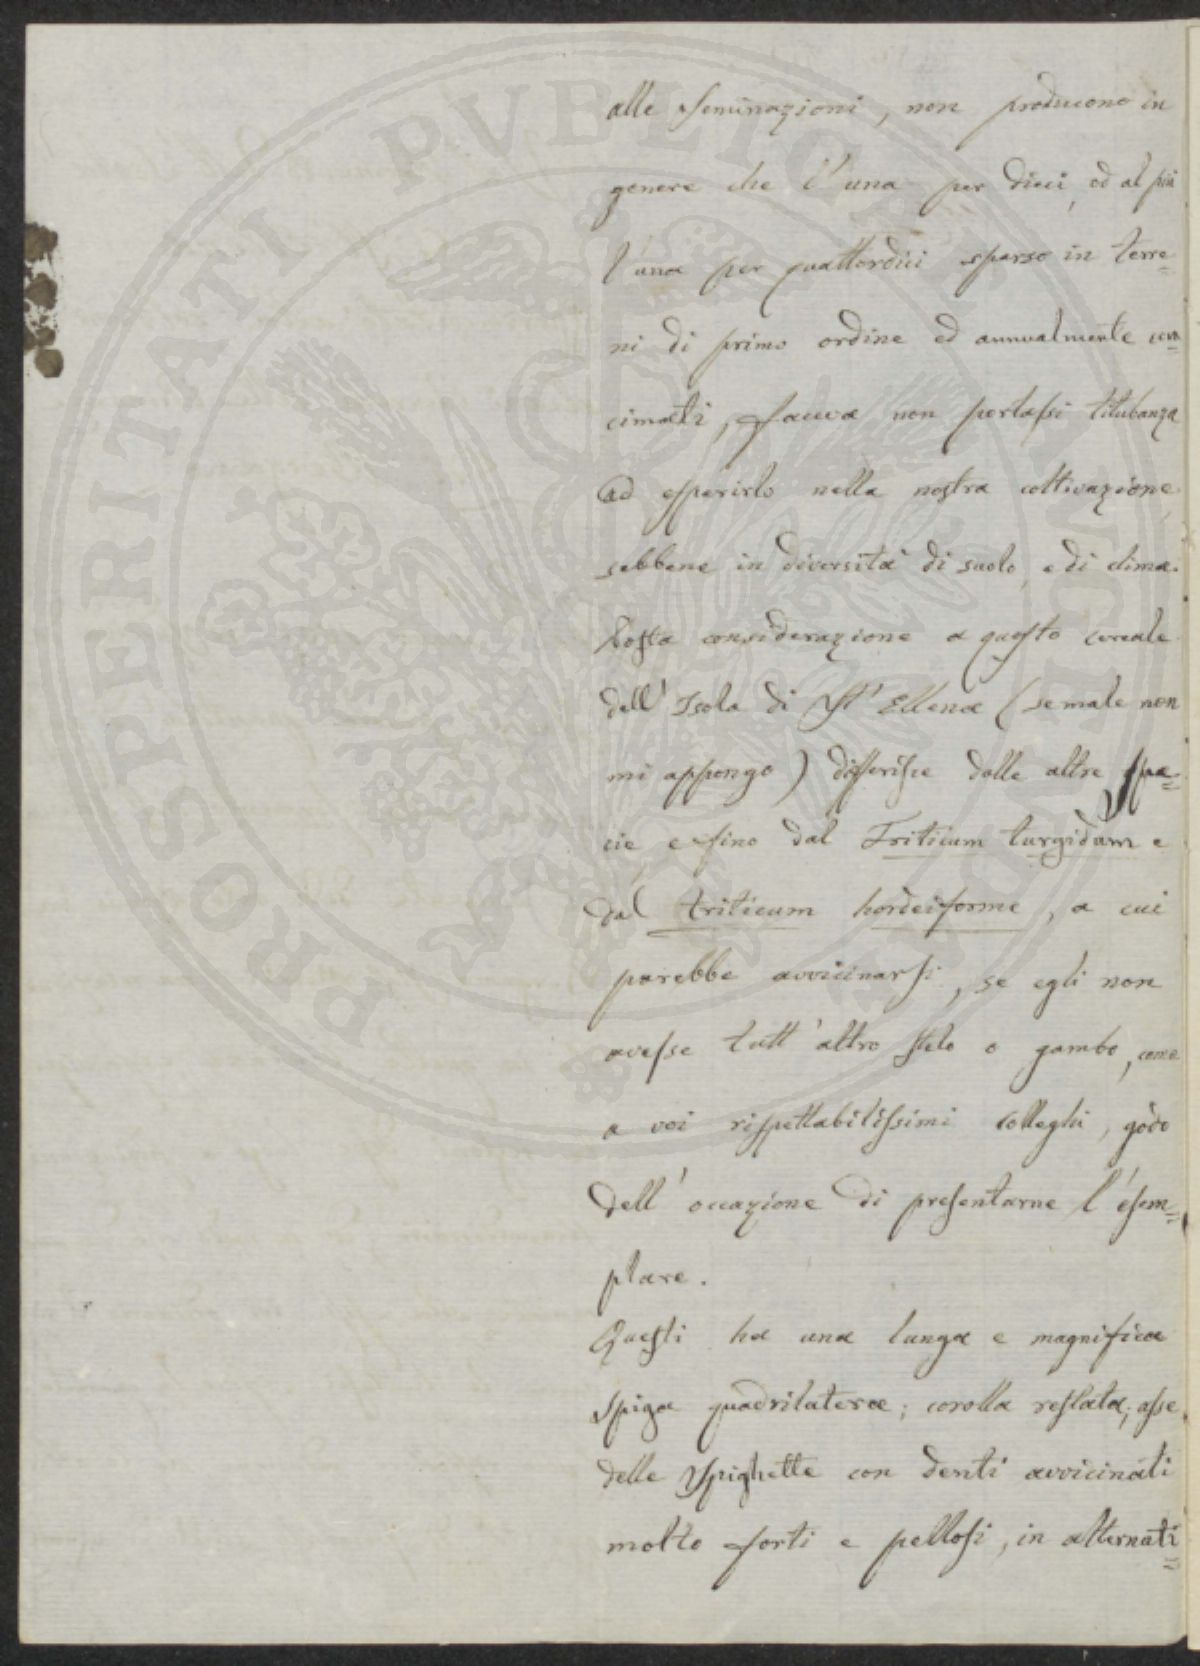 alle seminazioni, non producono in
genere che l'una per dieci, ed al più
l'una per quattordici sparso in terre=
ni di primo ordine ed annualmente con=
cimati, faceva non portassi titubanza
ad esperirlo nella nostra coltivazione,
sebbene in diversità di suolo, e di clima.
Posta considerazione a questo cereale
dell'Isola di St' Ellena (se male non
mi appongo) differisce dalle altre spe=
cie, e fino dal Triticum turgidum e
dal triticum hordeiforme, a cui
parebbe avvicinarsi, se egli non
avesse tutt'altro stelo o gambo, come
a voi rispettabilissimi Colleghi, godo
dell'occazione di presentarne l'esem=
plare.
Questi ha una lunga e magnifica
spiga quadrilatera; corolla restata; asse
delle spighette con denti avvicinati
molto forti e pellosi, in alternati=
PROSPERITATI PVBLICAE